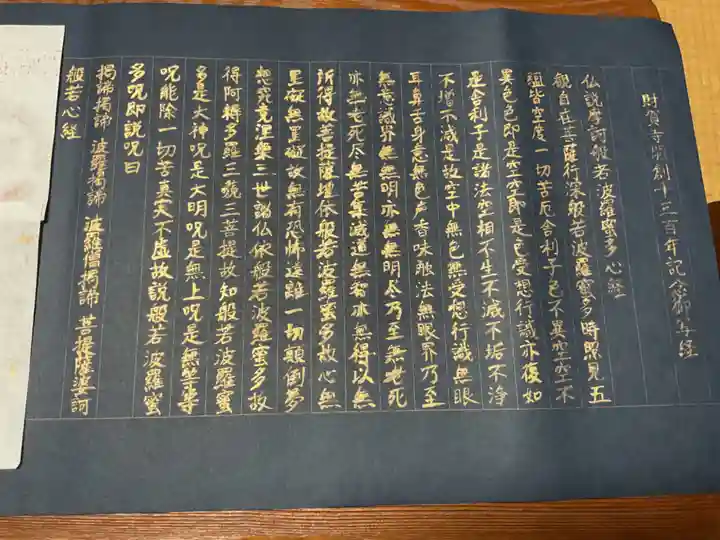 財賀寺開創千三百年記念御写経
仏説摩訶般若波羅蜜多心経
観自在菩薩行深般若波羅蜜多時照見五
蘊皆空度一切苦厄舎利子色不異空空不
異色色即是空空即是色受想行識亦復如
是舎利子是諸法空相不生不滅不垢不浄
不増不減是故空中無色無受想行識無眼
耳鼻舌身意無色声香味触法無眼界乃至
無意識界無無明亦無無明尽乃至無老死
亦無老死尽無苦集滅道無智亦無得以無
所得故菩提薩埵依般若波羅蜜多故心無
罣礙無罣礙故無有恐怖遠離一切顛倒夢
想究竟涅槃三世諸仏依般若波羅蜜多故
得阿耨多羅三藐三菩提故知般若波羅蜜
多是大神呪是大明呪是無上呪是無等等
呪能除一切苦真実不虚故説般若波羅蜜
多呪即説呪曰
羯諦羯諦 波羅羯諦 波羅僧羯諦 菩提薩婆訶
般若心経